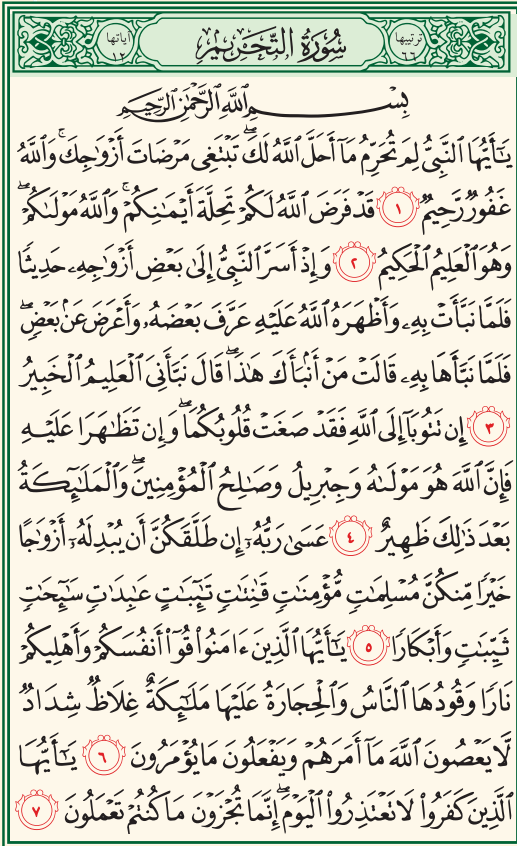 ترتيبها ٦٦ سُورَةُ التَّحْرِيمِ آياتها ١٢
بِسْمِ اللَّهِ الرَّحْمَٰنِ الرَّحِيمِ
يَٰٓأَيُّهَا ٱلنَّبِيُّ لِمَ تُحَرِّمُ مَآ أَحَلَّ ٱللَّهُ لَكَۖ تَبْتَغِي مَرْضَاتَ أَزْوَٰجِكَۚ وَٱللَّهُ
غَفُورٌ رَّحِيمٌ ١ قَدْ فَرَضَ ٱللَّهُ لَكُمْ تَحِلَّةَ أَيْمَٰنِكُمْۚ وَٱللَّهُ مَوْلَىٰكُمْۖ
وَهُوَ ٱلْعَلِيمُ ٱلْحَكِيمُ ٢ وَإِذْ أَسَرَّ ٱلنَّبِيُّ إِلَىٰ بَعْضِ أَزْوَٰجِهِۦ حَدِيثًا
فَلَمَّا نَبَّأَتْ بِهِۦ وَأَظْهَرَهُ ٱللَّهُ عَلَيْهِ عَرَّفَ بَعْضَهُۥ وَأَعْرَضَ عَنۢ بَعْضٍۖ
فَلَمَّا نَبَّأَهَا بِهِۦ قَالَتْ مَنْ أَنۢبَأَكَ هَٰذَاۖ قَالَ نَبَّأَنِيَ ٱلْعَلِيمُ ٱلْخَبِيرُ
٣ إِن تَتُوبَآ إِلَى ٱللَّهِ فَقَدْ صَغَتْ قُلُوبُكُمَاۖ وَإِن تَظَٰهَرَا عَلَيْهِ
فَإِنَّ ٱللَّهَ هُوَ مَوْلَىٰهُ وَجِبْرِيلُ وَصَٰلِحُ ٱلْمُؤْمِنِينَۖ وَٱلْمَلَٰٓئِكَةُ
بَعْدَ ذَٰلِكَ ظَهِيرٌ ٤ عَسَىٰ رَبُّهُۥٓ إِن طَلَّقَكُنَّ أَن يُبْدِلَهُۥٓ أَزْوَٰجًا
خَيْرًا مِّنكُنَّ مُسْلِمَٰتٍ مُّؤْمِنَٰتٍ قَٰنِتَٰتٍ تَٰٓئِبَٰتٍ عَٰبِدَٰتٍ سَٰٓئِحَٰتٍ
ثَيِّبَٰتٍ وَأَبْكَارًا ٥ يَٰٓأَيُّهَا ٱلَّذِينَ ءَامَنُوا۟ قُوٓا۟ أَنفُسَكُمْ وَأَهْلِيكُمْ
نَارًا وَقُودُهَا ٱلنَّاسُ وَٱلْحِجَارَةُ عَلَيْهَا مَلَٰٓئِكَةٌ غِلَاظٌ شِدَادٌ
لَّا يَعْصُونَ ٱللَّهَ مَآ أَمَرَهُمْ وَيَفْعَلُونَ مَا يُؤْمَرُونَ ٦ يَٰٓأَيُّهَا
ٱلَّذِينَ كَفَرُوا۟ لَا تَعْتَذِرُوا۟ ٱلْيَوْمَۖ إِنَّمَا تُجْزَوْنَ مَا كُنتُمْ تَعْمَلُونَ ٧